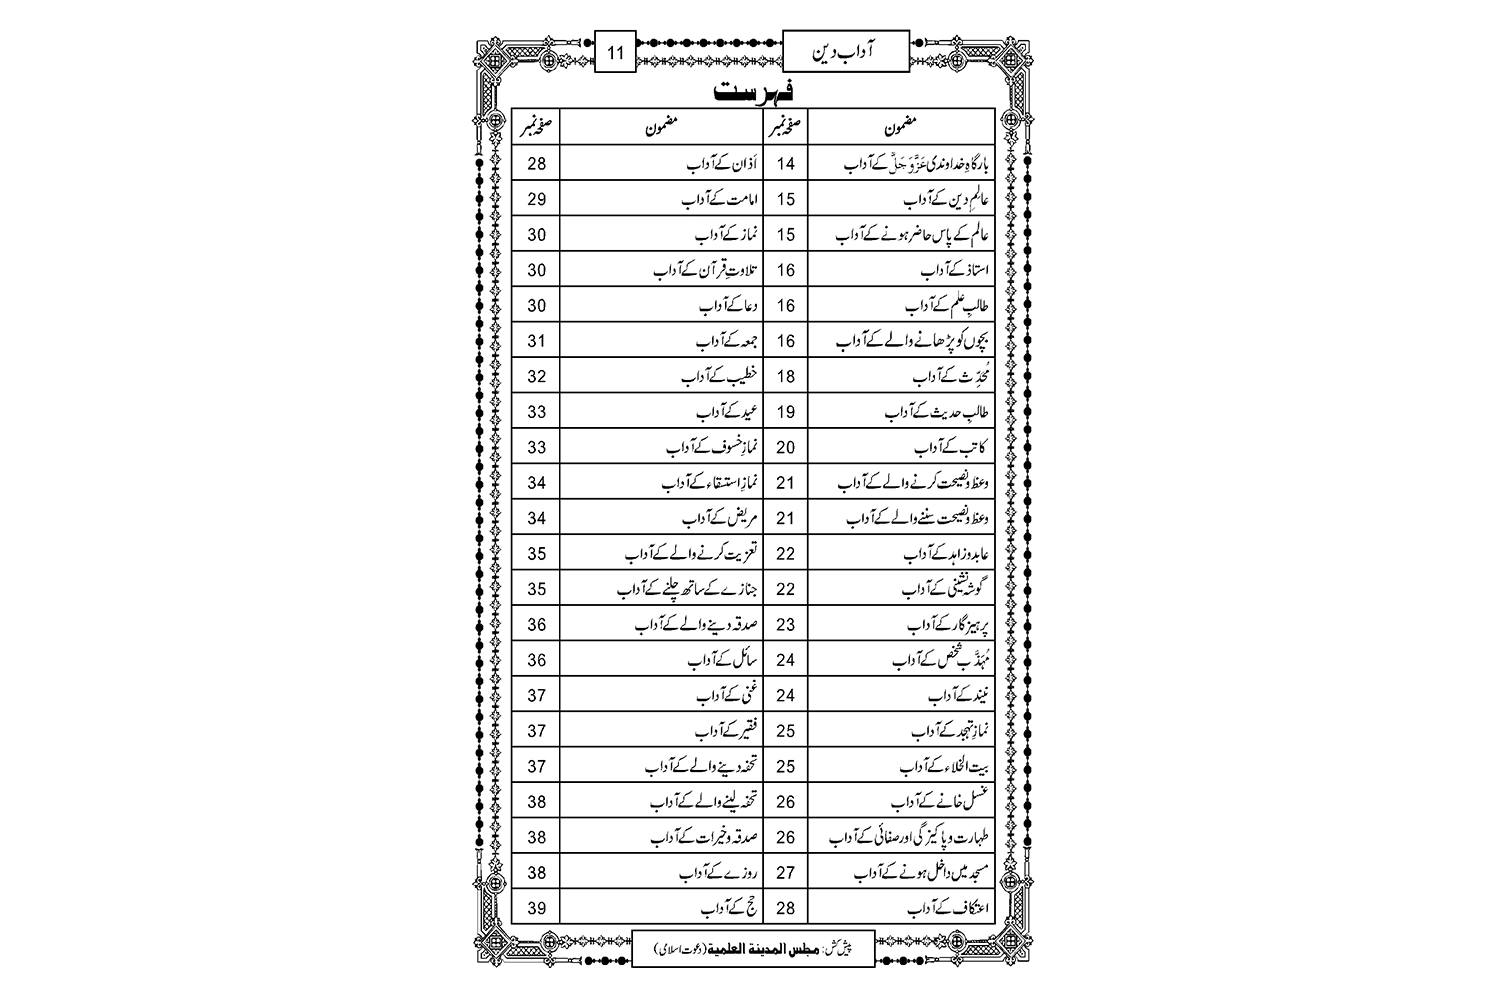 آداب دین 11
فہرست
مضمون صفحہ نمبر مضمون صفحہ نمبر
بارگاہِ خداوندی عَزَّوَجَلَّ کے آداب 14 اَذان کے آداب 28
عالِمِ دین کے آداب 15 امامت کے آداب 29
عالم کے پاس حاضر ہونے کے آداب 15 نماز کے آداب 30
استاذ کے آداب 16 تلاوتِ قرآن کے آداب 30
طالبِ علم کے آداب 16 دعا کے آداب 30
بچوں کو پڑھانے والے کے آداب 16 جمعہ کے آداب 31
مُحَدِّث کے آداب 18 خطیب کے آداب 32
طالبِ حدیث کے آداب 19 عید کے آداب 33
کاتب کے آداب 20 نمازِ خسوف کے آداب 33
وعظ و نصیحت کرنے والے کے آداب 21 نمازِ استسقاء کے آداب 34
وعظ و نصیحت سننے والے کے آداب 21 مریض کے آداب 34
عابد و زاہد کے آداب 22 تعزیت کرنے والے کے آداب 35
گوشہ نشینی کے آداب 22 جنازے کے ساتھ چلنے کے آداب 35
پرہیزگار کے آداب 23 صدقہ دینے والے کے آداب 36
مُہَذَّب شخص کے آداب 24 سائل کے آداب 36
نیند کے آداب 24 غنی کے آداب 37
نمازِ تہجد کے آداب 25 فقیر کے آداب 37
بیت الخلاء کے آداب 25 تحفہ دینے والے کے آداب 37
غسل خانے کے آداب 26 تحفہ لینے والے کے آداب 38
طہارت و پاکیزگی اور صفائی کے آداب 26 صدقہ و خیرات کے آداب 38
مسجد میں داخل ہونے کے آداب 27 روزے کے آداب 38
اعتکاف کے آداب 28 حج کے آداب 39
پیش کش: مجلس المدینۃ العلمیۃ (دعوت اسلامی)